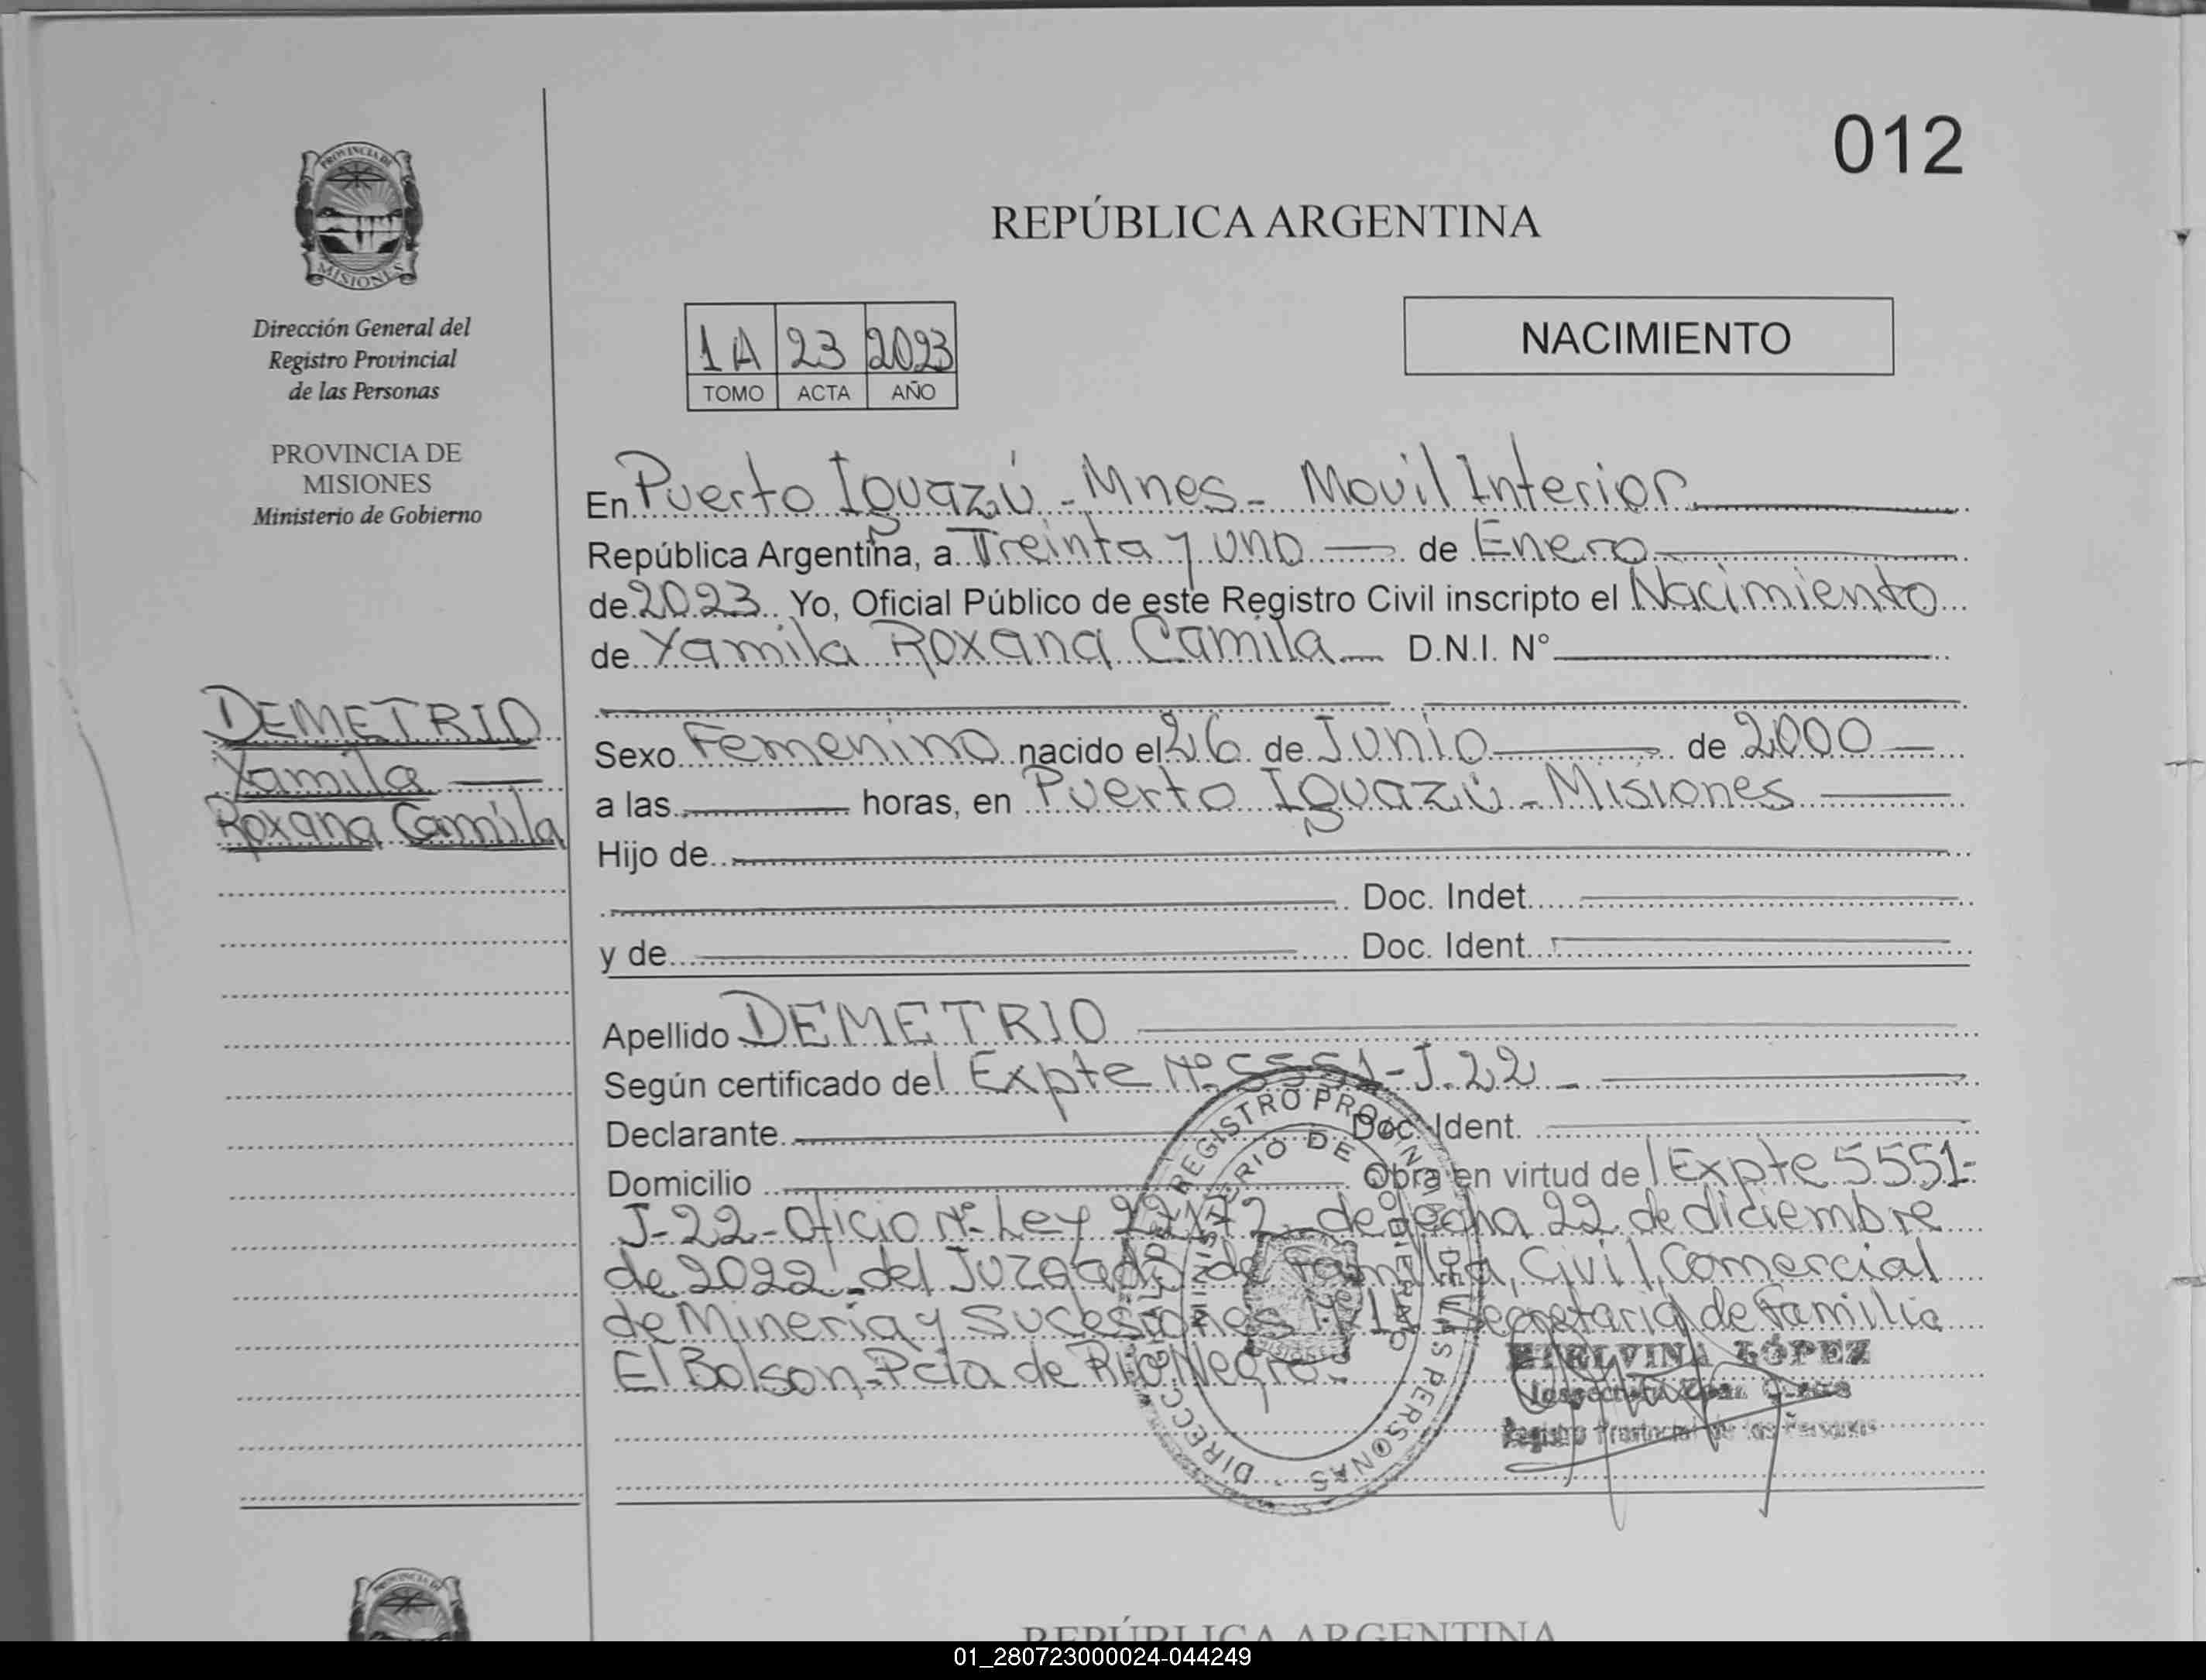 012
PROVINCIA DE
MISIONES
REPÚBLICA ARGENTINA
Dirección General del
Registro Provincial
de las Personas
PROVINCIA DE
MISIONES
Ministerio de Gobierno
1A 23 2023
TOMO ACTA AÑO
NACIMIENTO
En Puerto Iguazú - Mnes - Movil Interior
República Argentina, a Treinta y uno de Enero
de 2023 Yo, Oficial Público de este Registro Civil inscripto el Nacimiento
de Yamila Roxana Camila D.N.I. N°
DEMETRIO
Yamila
Roxana Camila
Sexo Femenino nacido el 26 de Junio de 2000
a las horas, en Puerto Iguazú - Misiones
Hijo de
Doc. Indet.
y de Doc. Ident.
Apellido DEMETRIO
Según certificado del Expte Nº 5551-J-22 -
Declarante Doc. Ident.
Domicilio Obra en virtud del Expte 5551-
J-22-Oficio Nº Ley 22172 - de fecha 22 de diciembre
de 2022 - del Juzgado de Familia, Civil, Comercial
de Minería y Sucesiones Nº 11 - Secretaria de Familia
El Bolson - Pcia de Rio Negro -
DIRECCION GENERAL DEL REGISTRO PROVINCIAL DE LAS PERSONAS
MINISTERIO DE GOBIERNO
LÓPEZ
Registro Provincial de las Personas
PROVINCIA DE
REPÚBLICA ARGENTINA
01_280723000024-044249